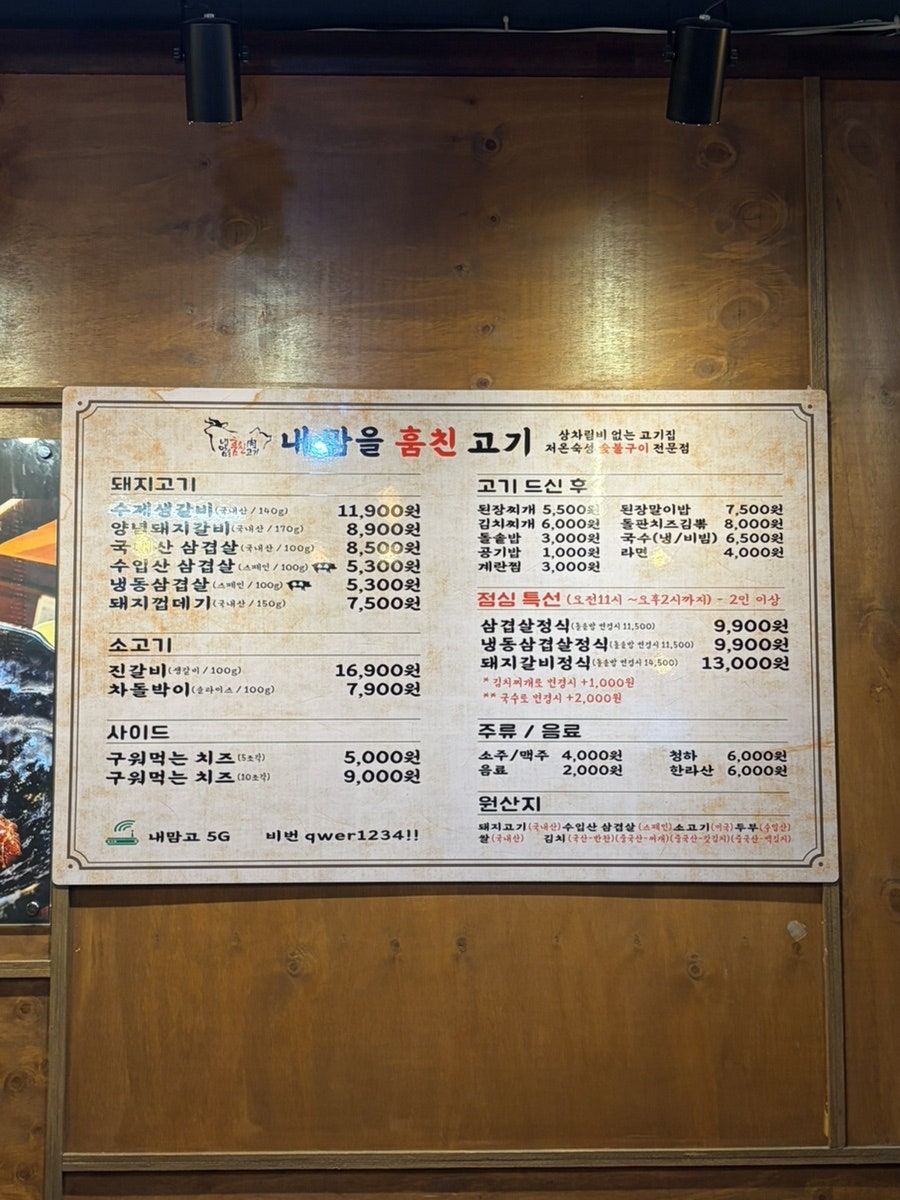 내맘을 훔친 고기
상차림비 없는 고기집
저온숙성 숯불구이 전문점
돼지고기
수제생갈비(국내산 / 140g) 11,900원
양념돼지갈비(국내산 / 170g) 8,900원
국내산 삼겹살(국내산 / 100g) 8,500원
수입산 삼겹살(스페인 / 100g) 5,300원
냉동삼겹살(스페인 / 100g) 5,300원
돼지껍데기(국내산 / 150g) 7,500원
소고기
진갈비(생갈비 / 100g) 16,900원
차돌박이(슬라이스 / 100g) 7,900원
사이드
구워먹는 치즈(5조각) 5,000원
구워먹는 치즈(10조각) 9,000원
내맘고 5G 비번 qwer1234!!
고기 드신 후
된장찌개 5,500원 된장말이밥 7,500원
김치찌개 6,000원 돌판치즈김볶 8,000원
돌솥밥 3,000원 국수(냉/비빔) 6,500원
공기밥 1,000원 라면 4,000원
계란찜 3,000원
점심 특선 (오전11시 ~오후2시까지) - 2인 이상
삼겹살정식(돌솥밥 변경시 11,500) 9,900원
냉동삼겹살정식(돌솥밥 변경시 11,500) 9,900원
돼지갈비정식(돌솥밥 변경시 14,500) 13,000원
* 김치찌개로 변경시 +1,000원
** 국수로 변경시 +2,000원
주류 / 음료
소주/맥주 4,000원 청하 6,000원
음료 2,000원 한라산 6,000원
원산지
돼지고기(국내산)수입산 삼겹살(스페인)소고기(미국)두부(수입산)
쌀(국내산) 김치(국산-반찬)(중국산-찌개)(중국산-갓김치)(중국산-백김치)